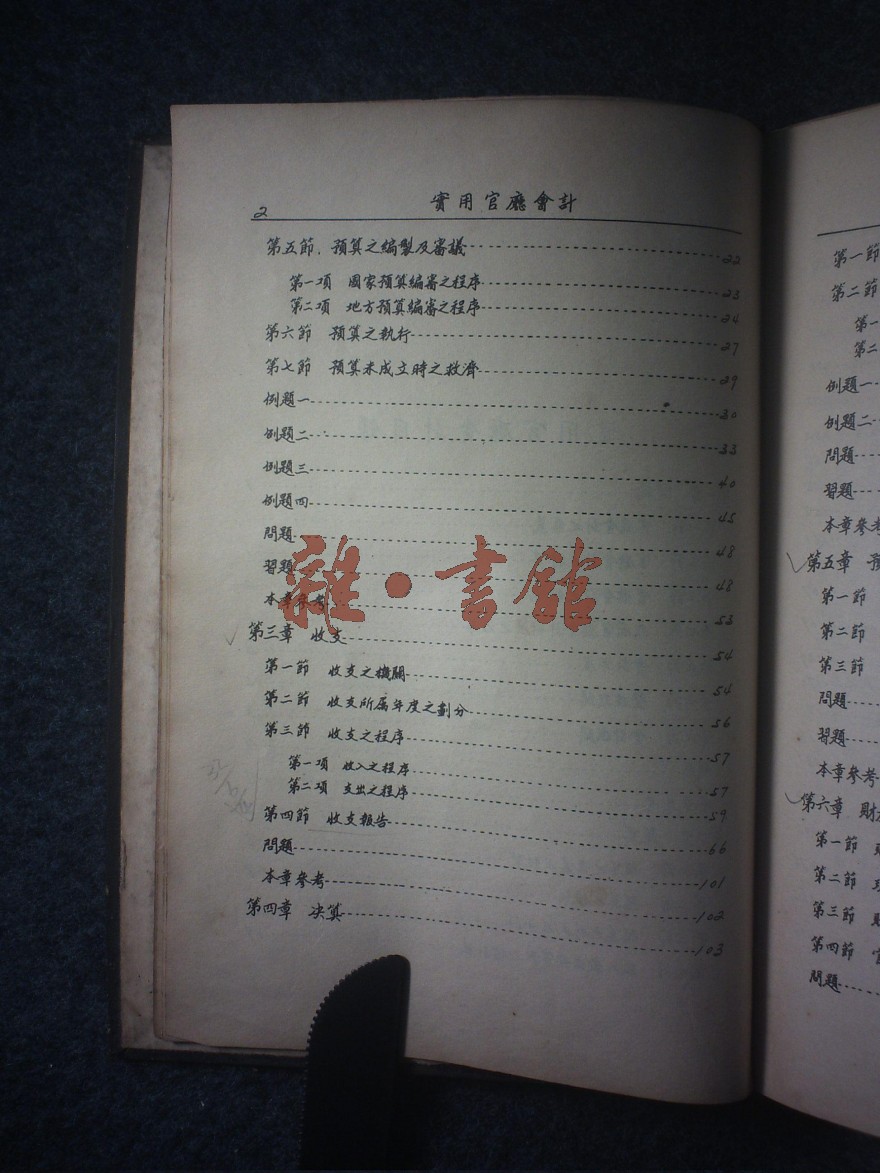 2 實用官廳會計
第五節 預算之編製及審議 22
第一項 國家預算編審之程序 23
第二項 地方預算編審之程序 24
第六節 預算之執行 27
第七節 預算未成立時之救濟 29
例題一 30
例題二 33
例題三 40
例題四 45
問題 48
習題 48
本章參考 53
第三章 收支 54
第一節 收支之機關 54
第二節 收支所屬年度之劃分 56
第三節 收支之程序 57
第一項 收入之程序 57
第二項 支出之程序 59
第四節 收支報告 66
問題 101
本章參考 102
第四章 决算 103
雜·書館
第一節
第二節
第一
第二
例題一
例題二
問題
習題
本章參考
第五章 預
第一節
第二節
第三節
問題
習題
本章參考
第六章 財
第一節
第二節
第三節
第四節
問題